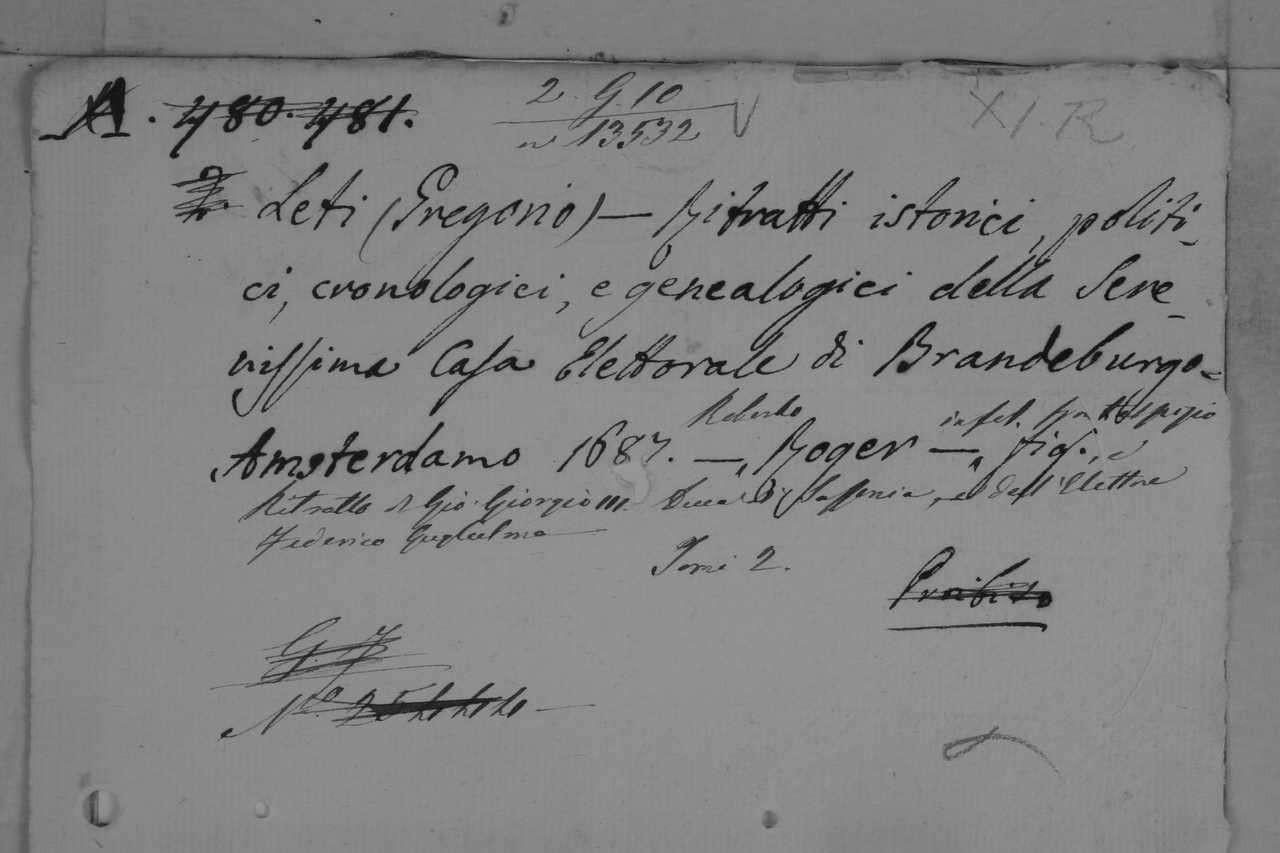 A. 480. 481.
2. G. 10
n° 13532
XI. R
Leti (Gregorio) — Ritratti istorici, politi-
ci, cronologici, e genealogici della Sere-
nissima Casa Elettorale di Brandeburgo-
Roberto in fol. frontespizio
Amsterdamo 1687. —„ Roger —„ fig., e
Ritratto di Gio. Giorgio III. Duca di Sassonia, e dell'Elettore
Federico Guglielmo
Tomi 2.
Proibito
G. 7
N.º